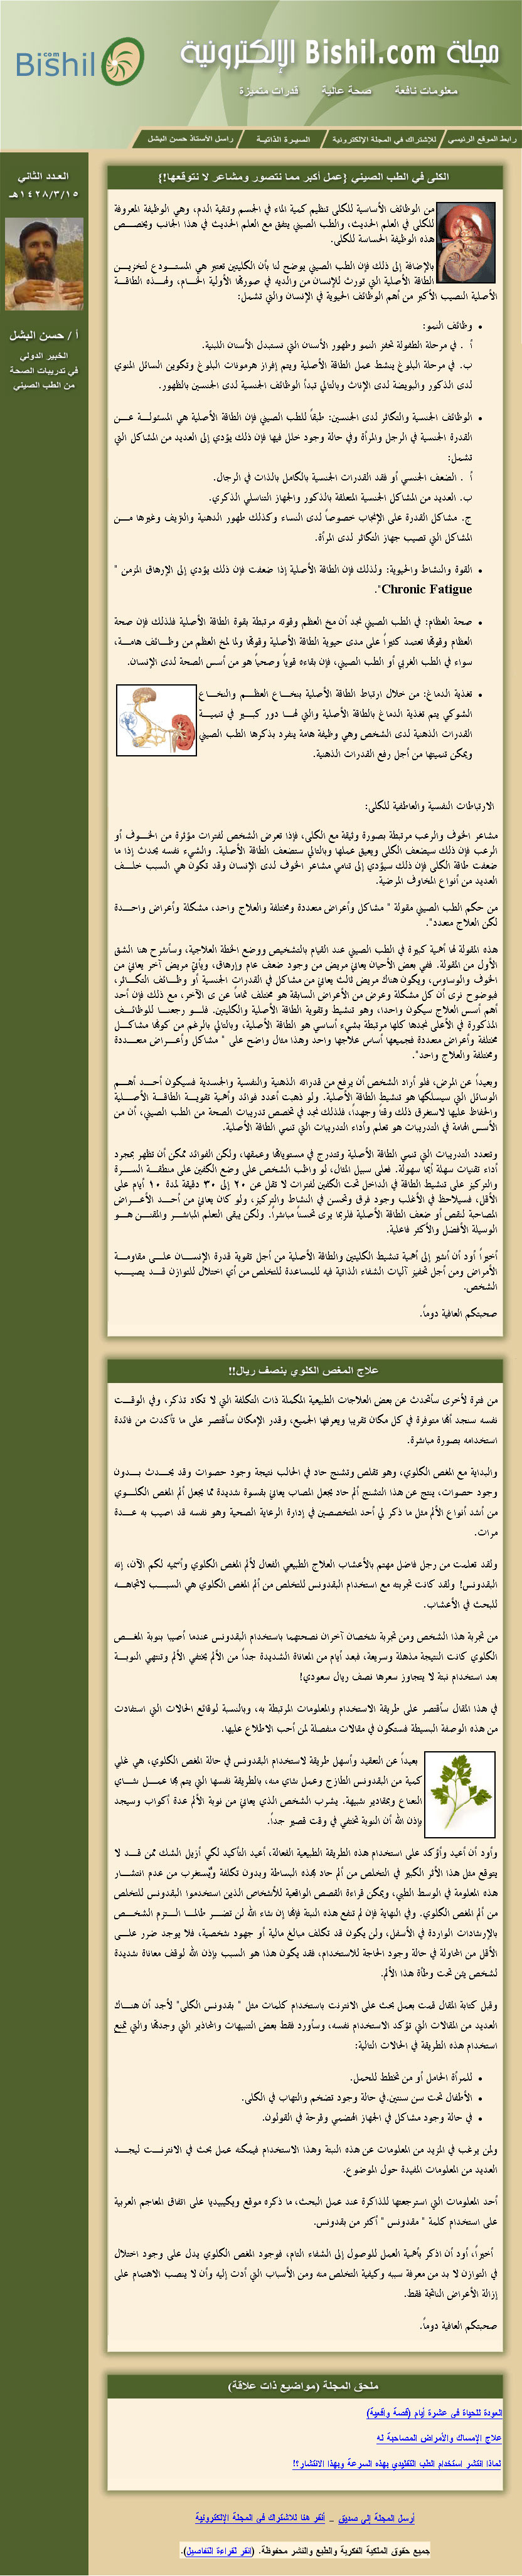 Bishil
com
مجلة Bishil.com الإلكترونية
معلومات نافعة صحة عالية قدرات متميزة
رابط الموقع الرئيسي للإشتراك في المجلة الإلكترونية السيرة الذاتية راسل الأستاذ حسن البشل
العدد الثاني
١٤٢٨/٣/١٥هـ
أ / حسن البشل
الخبير الدولي
في تدريبات الصحة
من الطب الصيني
الكلى في الطب الصيني {عمل أكبر مما نتصور ومشاعر لا نتوقعها!}
من الوظائف الأساسية للكلى تنظيم كمية الماء في الجسم وتنقية الدم، وهي الوظيفة المعروفة
للكلى في العلم الحديث، والطب الصيني يتفق مع العلم الحديث في هذا الجانب ويخصص
هذه الوظيفة الحساسة للكلى.
بالإضافة إلى ذلك فإن الطب الصيني يوضح لنا بأن الكليتين تعتبر هي المستودع لتخزين
الطاقة الأصلية التي تورث للإنسان من والديه في صورتها الأولية الخام، ولهذه الطاقة
الأصلية النصيب الأكبر من أهم الوظائف الحيوية في الإنسان والتي تشمل:
• وظائف النمو:
أ . في مرحلة الطفولة تحفز النمو وظهور الأسنان التي تستبدل الأسنان اللبنية.
ب. في مرحلة البلوغ ينشط عمل الطاقة الأصلية ويتم إفراز هرمونات البلوغ وتكوين السائل المنوي
لدى الذكور والبويضة لدى الإناث وبالتالي تبدأ الوظائف الجنسية لدى الجنسين بالظهور.
• الوظائف الجنسية والتكاثر لدى الجنسين: طبقاً للطب الصيني فإن الطاقة الأصلية هي المسئولة عن
القدرة الجنسية في الرجل والمرأة وفي حالة وجود خلل فيها فإن ذلك يؤدي إلى العديد من المشاكل التي
تشمل:
أ . الضعف الجنسي أو فقد القدرات الجنسية بالكامل بالذات في الرجال.
ب. العديد من المشاكل الجنسية المتعلقة بالذكور والجهاز التناسلي الذكري.
ج. مشاكل القدرة على الإنجاب خصوصاً لدى النساء وكذلك طهور الدهنية والنزيف وغيرها من
المشاكل التي تصيب جهاز التكاثر لدى المرأة.
• القوة والنشاط والحيوية: ولذلك فإن الطاقة الأصلية إذا ضعفت فإن ذلك يؤدي إلى الإرهاق المزمن "
Chronic Fatigue".
• صحة العظام: في الطب الصيني نجد أن مخ العظم وقوته مرتبطة بقوة الطاقة الأصلية فلذلك فإن صحة
العظام وقوتها تعتمد كثيراً على مدى حيوية الطاقة الأصلية وقوتها ولما لمخ العظم من وظائف هامة،
سواء في الطب الغربي أو الطب الصيني، فإن بقاءه قوياً وصحياً هو من أسس الصحة لدى الإنسان.
• تغذية الدماغ: من خلال ارتباط الطاقة الأصلية بنخاع العظم والنخاع
الشوكي يتم تغذية الدماغ بالطاقة الأصلية والتي لها دور كبير في تنمية
القدرات الذهنية لدى الشخص وهي وظيفة هامة ينفرد بذكرها الطب الصيني
ويمكن تنميتها من أجل رفع القدرات الذهنية.
الارتباطات النفسية والعاطفية للكلى:
مشاعر الخوف والرعب مرتبطة بصورة وثيقة مع الكلى، فإذا تعرض الشخص لفترات مؤثرة من الخوف أو
الرعب فإن ذلك سيضعف الكلى ويعيق عملها وبالتالي ستضعف الطاقة الأصلية. والشيء نفسه يحدث إذا ما
ضعفت طاقة الكلى فإن ذلك سيؤدي إلى تنامي مشاعر الخوف لدى الإنسان وقد تكون هي السبب خلف
العديد من أنواع المخاوف المرضية.
من حكم الطب الصيني مقولة " مشاكل وأعراض متعددة ومختلفة والعلاج واحد، مشكلة وأعراض واحدة
لكن العلاج متعدد".
هذه المقولة لها أهمية كبيرة في الطب الصيني عند القيام بالتشخيص ووضع الخطة العلاجية، وسأشرح هنا الشق
الأول من المقولة. ففي بعض الأحيان يعاني مريض من وجود ضعف عام وإرهاق، ويأتي مريض آخر يعاني من
الخوف والوساوس، ويكون هناك مريض ثالث يعاني من مشاكل في القدرات الجنسية أو وظائف التكاثر،
فبوضوح نرى أن كل مشكلة وعرض من الأعراض السابقة هو مختلف تماماً عن الآخر، مع ذلك فإن أحد
أهم أسس العلاج سيكون واحد، وهو تنشيط وتقوية الطاقة الأصلية والكليتين. فلو رجعنا للوظائف
المذكورة في الأعلى نجدها كلها مرتبطة بشيء أساسي هو الطاقة الأصلية، وبالتالي بالرغم من كونها مشاكل
مختلفة وأعراض متعددة فجميعها أساس علاجها واحد وهذا مثال واضح على " مشاكل وأعراض متعددة
ومختلفة والعلاج واحد".
وبعيداً عن المرض، فلو أراد الشخص أن يرفع من قدراته الذهنية والنفسية والجسدية فسيكون أحد أهم
الوسائل التي سيسلكها هو تنشيط الطاقة الأصلية. ولو ذهبت أعدد فوائد وأهمية تقوية الطاقة الأصلية
والحفاظ عليها لاستغرق ذلك وقتاً وجهداً، فلذلك نجد في تخصص تدريبات الصحة من الطب الصيني، أن من
الأسس الهامة في التدريبات هو تعلم وأداء التدريبات التي تنمي الطاقة الأصلية.
وتتعدد التدريبات التي تنمي الطاقة الأصلية وتتدرج في مستوياتها وعمقها، ولكن الفوائد ممكن أن تظهر بمجرد
أداء تقنيات سهلة أيما سهولة. فعلى سبيل المثال، لو واظب الشخص على وضع الكفين على منطقة السرة
والتركيز على تنشيط الطاقة في الداخل تحت الكفين لفترات لا تقل عن ٢٠ إلى ٣٠ دقيقة لمدة ١٠ أيام على
الأقل، فسيلاحظ في الأغلب وجود فرق وتحسن في النشاط والتركيز، ولو كان يعاني من أحد الأعراض
المصاحبة لنقص أو ضعف الطاقة الأصلية فلربما يرى تحسناً مباشراً. ولكن يبقى التعلم المباشر والمقنن هو
الوسيلة الأفضل والأكثر فاعلية.
أخيراً أود أن أشير إلى أهمية تنشيط الكليتين والطاقة الأصلية من أجل تقوية قدرة الإنسان على مقاومة
الأمراض ومن أجل تحفيز آليات الشفاء الذاتية فيه للمساعدة للتخلص من أي اختلال للتوازن قد يصيب
الشخص.
صحبتكم العافية دوماً.
علاج المغص الكلوي بنصف ريال!!
من فترة لأخرى سأتحدث عن بعض العلاجات الطبيعية المكملة ذات التكلفة التي لا تكاد تذكر، وفي الوقت
نفسه سنجد أنها متوفرة في كل مكان تقريبا ويعرفها الجميع، وقدر الإمكان سأقتصر على ما تأكدت من فائدة
استخدامه بصورة مباشرة.
والبداية مع المغص الكلوي، وهو تقلص وتشنج حاد في الحالب نتيجة وجود حصوات وقد يحدث بدون
وجود حصوات، ينتج عن هذا التشنج ألم حاد يجعل المصاب يعاني بقسوة شديدة مما يجعل ألم المغص الكلوي
من أشد أنواع الألم مثل ما ذكر لي أحد المتخصصين في إدارة الرعاية الصحية وهو نفسه قد اصيب به عدة
مرات.
ولقد تعلمت من رجل فاضل مهتم بالأعشاب العلاج الطبيعي الفعال لألم المغص الكلوي وأسميه لكم الآن، إنه
البقدونس! ولقد كانت تجربته مع استخدام البقدونس للتخلص من ألم المغص الكلوي هي السبب لاتجاهه
للبحث في الأعشاب.
من تجربة هذا الشخص ومن تجربة شخصان آخران نصحتهما باستخدام البقدونس عندما أصيبا بنوبة المغص
الكلوي كانت النتيجة مذهلة وسريعة، فبعد أيام من المعاناة الشديدة جداً من الألم يختفي الألم وتنتهي النوبة
بعد استخدام نبتة لا يتجاوز سعرها نصف ريال سعودي!
في هذا المقال سأقتصر على طريقة الاستخدام والمعلومات المرتبطة به، وبالنسبة لوقائع الحالات التي استفادت
من هذه الوصفة البسيطة فستكون في مقالات منفصلة لمن أحب الاطلاع عليها.
بعيداً عن التعقيد وأسهل طريقة لاستخدام البقدونس في حالة المغص الكلوي، هي غلي
كمية من البقدونس الطازج وعمل شاي منه، بالطريقة نفسها التي يتم بها عمل شاي
النعناع وبمقادير شبيهة. يشرب الشخص الذي يعاني من نوبة الألم عدة أكواب وسيجد
بإذن الله أن النوبة تختفي في وقت قصير جداً.
وأود أن أعيد وأؤكد على استخدام هذه الطريقة الطبيعية الفعالة، أعيد التأكيد لكي أزيل الشك ممن قد لا
يتوقع مثل هذا الأثر الكبير في التخلص من ألم حاد بهذه البساطة وبدون تكلفة ويُستغرب من عدم انتشار
هذه المعلومة في الوسط الطبي، ويمكن قراءة القصص الواقعية للأشخاص الذين استخدموا البقدونس للتخلص
من ألم المغص الكلوي. وفي النهاية فإن لم تنفع هذه النبتة فإنها إن شاء الله لن تضر طالما التزم الشخص
بالإرشادات الواردة في الأسفل، ولن يكون قد تكلف مبالغ مالية أو جهود شخصية، فلا يوجد ضرر على
الأقل من المحاولة في حالة وجود الحاجة للاستخدام، فقد يكون هذا هو السبب بإذن الله لوقف معاناة شديدة
لشخص يئن تحت وطأة هذا الألم.
وقبل كتابة المقال قمت بعمل بحث على الانترنت باستخدام كلمات مثل " بقدونس الكلى" لأجد أن هناك
العديد من المقالات التي تؤكد الاستخدام نفسه، وسأورد فقط بعض التنبيهات والمحاذير التي وجدتها والتي تمنع
استخدام هذه الطريقة في الحالات التالية:
• للمرأة الحامل أو من تخطط للحمل.
• الأطفال تحت سن سنتين.في حالة وجود تضخم والتهاب في الكلى.
• في حالة وجود مشاكل في الجهاز الهضمي وقرحة في القولون.
ولمن يرغب في المزيد من المعلومات عن هذه النبتة وهذا الاستخدام فيمكنه عمل بحث في الانترنت ليجد
العديد من المعلومات المفيدة حول الموضوع.
أحد المعلومات التي استرجعتها للذاكرة عند عمل البحث، ما ذكره موقع ويكيبيديا على اتفاق المعاجم العربية
على استخدام كلمة " مقدونس " أكثر من بقدونس.
أخيراً، أود أن اذكر بأهمية العمل للوصول إلى الشفاء التام، فوجود المغص الكلوي يدل على وجود اختلال
في التوازن لا بد من معرفة سببه وكيفية التخلص منه ومن الأسباب التي أدت إليه وأن لا ينصب الاهتمام على
إزالة الأعراض الناتجة فقط.
صحبتكم العافية دوماً.
ملحق المجلة (مواضيع ذات علاقة)
العودة للحياة في عشرة أيام (قصة واقعية)
علاج الإمساك والأمراض المصاحبة له
لماذا انتشر استخدام الطب التقليدي بهذه السرعة وبهذا الانتشار؟!
أرسل المجلة إلى صديق _ أنقر هنا للاشتراك في المجلة الإلكترونية
جميع حقوق الملكية الفكرية والطبع والنشر محفوظة. (انقر لقراءة التفاصيل).